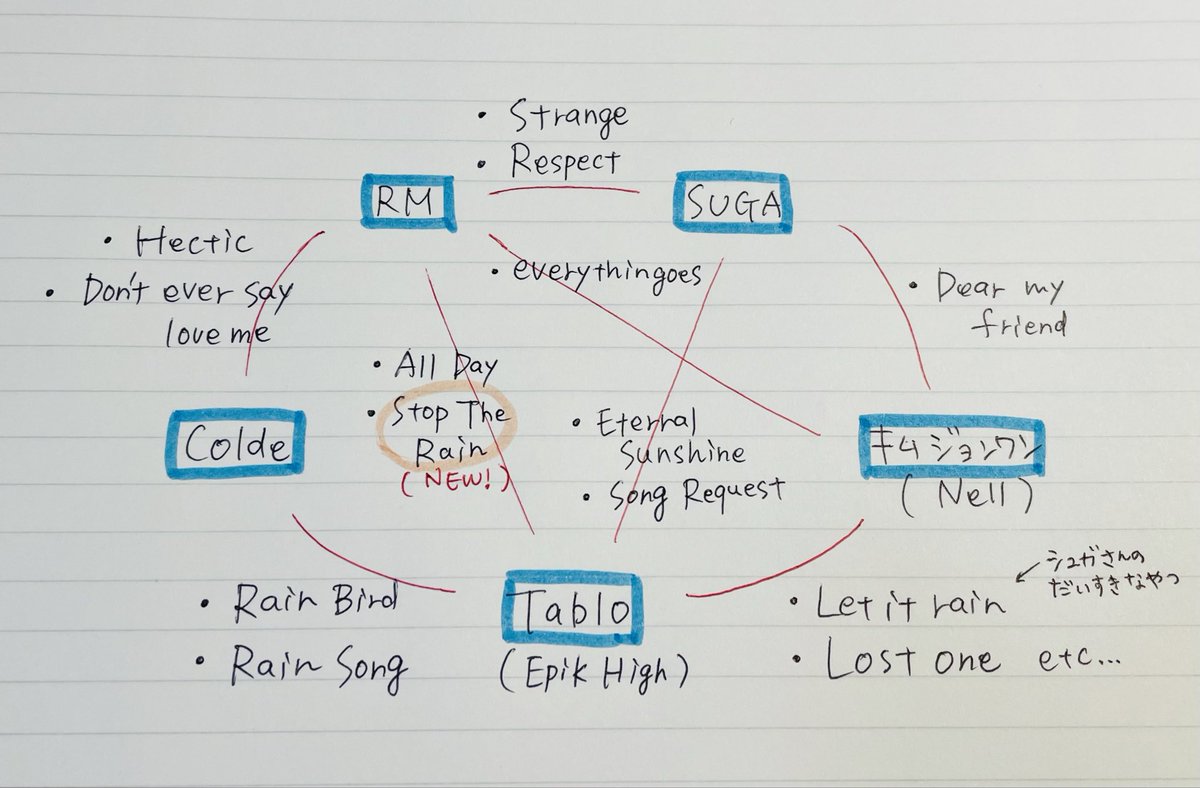 • Strange
• Respect
RM
SUGA
• Hectic
• Don't ever say
love me
• everythingoes
• Dear my
friend
• All Day
• Stop The
Rain
(NEW!)
Colde
• Eternal
Sunshine
• Song Request
キムジョンワン
(Nell)
シュガさんの
だいすきなやつ
• Rain Bird
• Rain Song
Tablo
(Epik High)
• Let it rain
• Lost one etc...